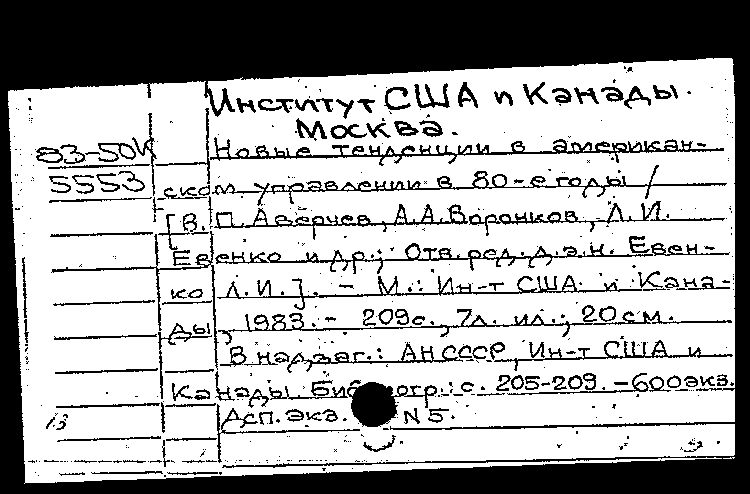 Институт США и Канады.
Москва.
83-50К
5553
Новые тенденции в американ-
ском управлении в 80-е годы /
[В. П. Аверчев, А.А. Воронков, Л. И.
Евенко и др.; Отв. ред. д.э.н. Евен-
ко Л. И.]. - М.: Ин-т США и Кана-
ды, 1983. - 209с., 7л. ил.; 20см.
В надзаг.: АН СССР, Ин-т США и
Канады. Библиогр.: с. 205-209. - 600экз.
Дсп. Экз. N 5.
13